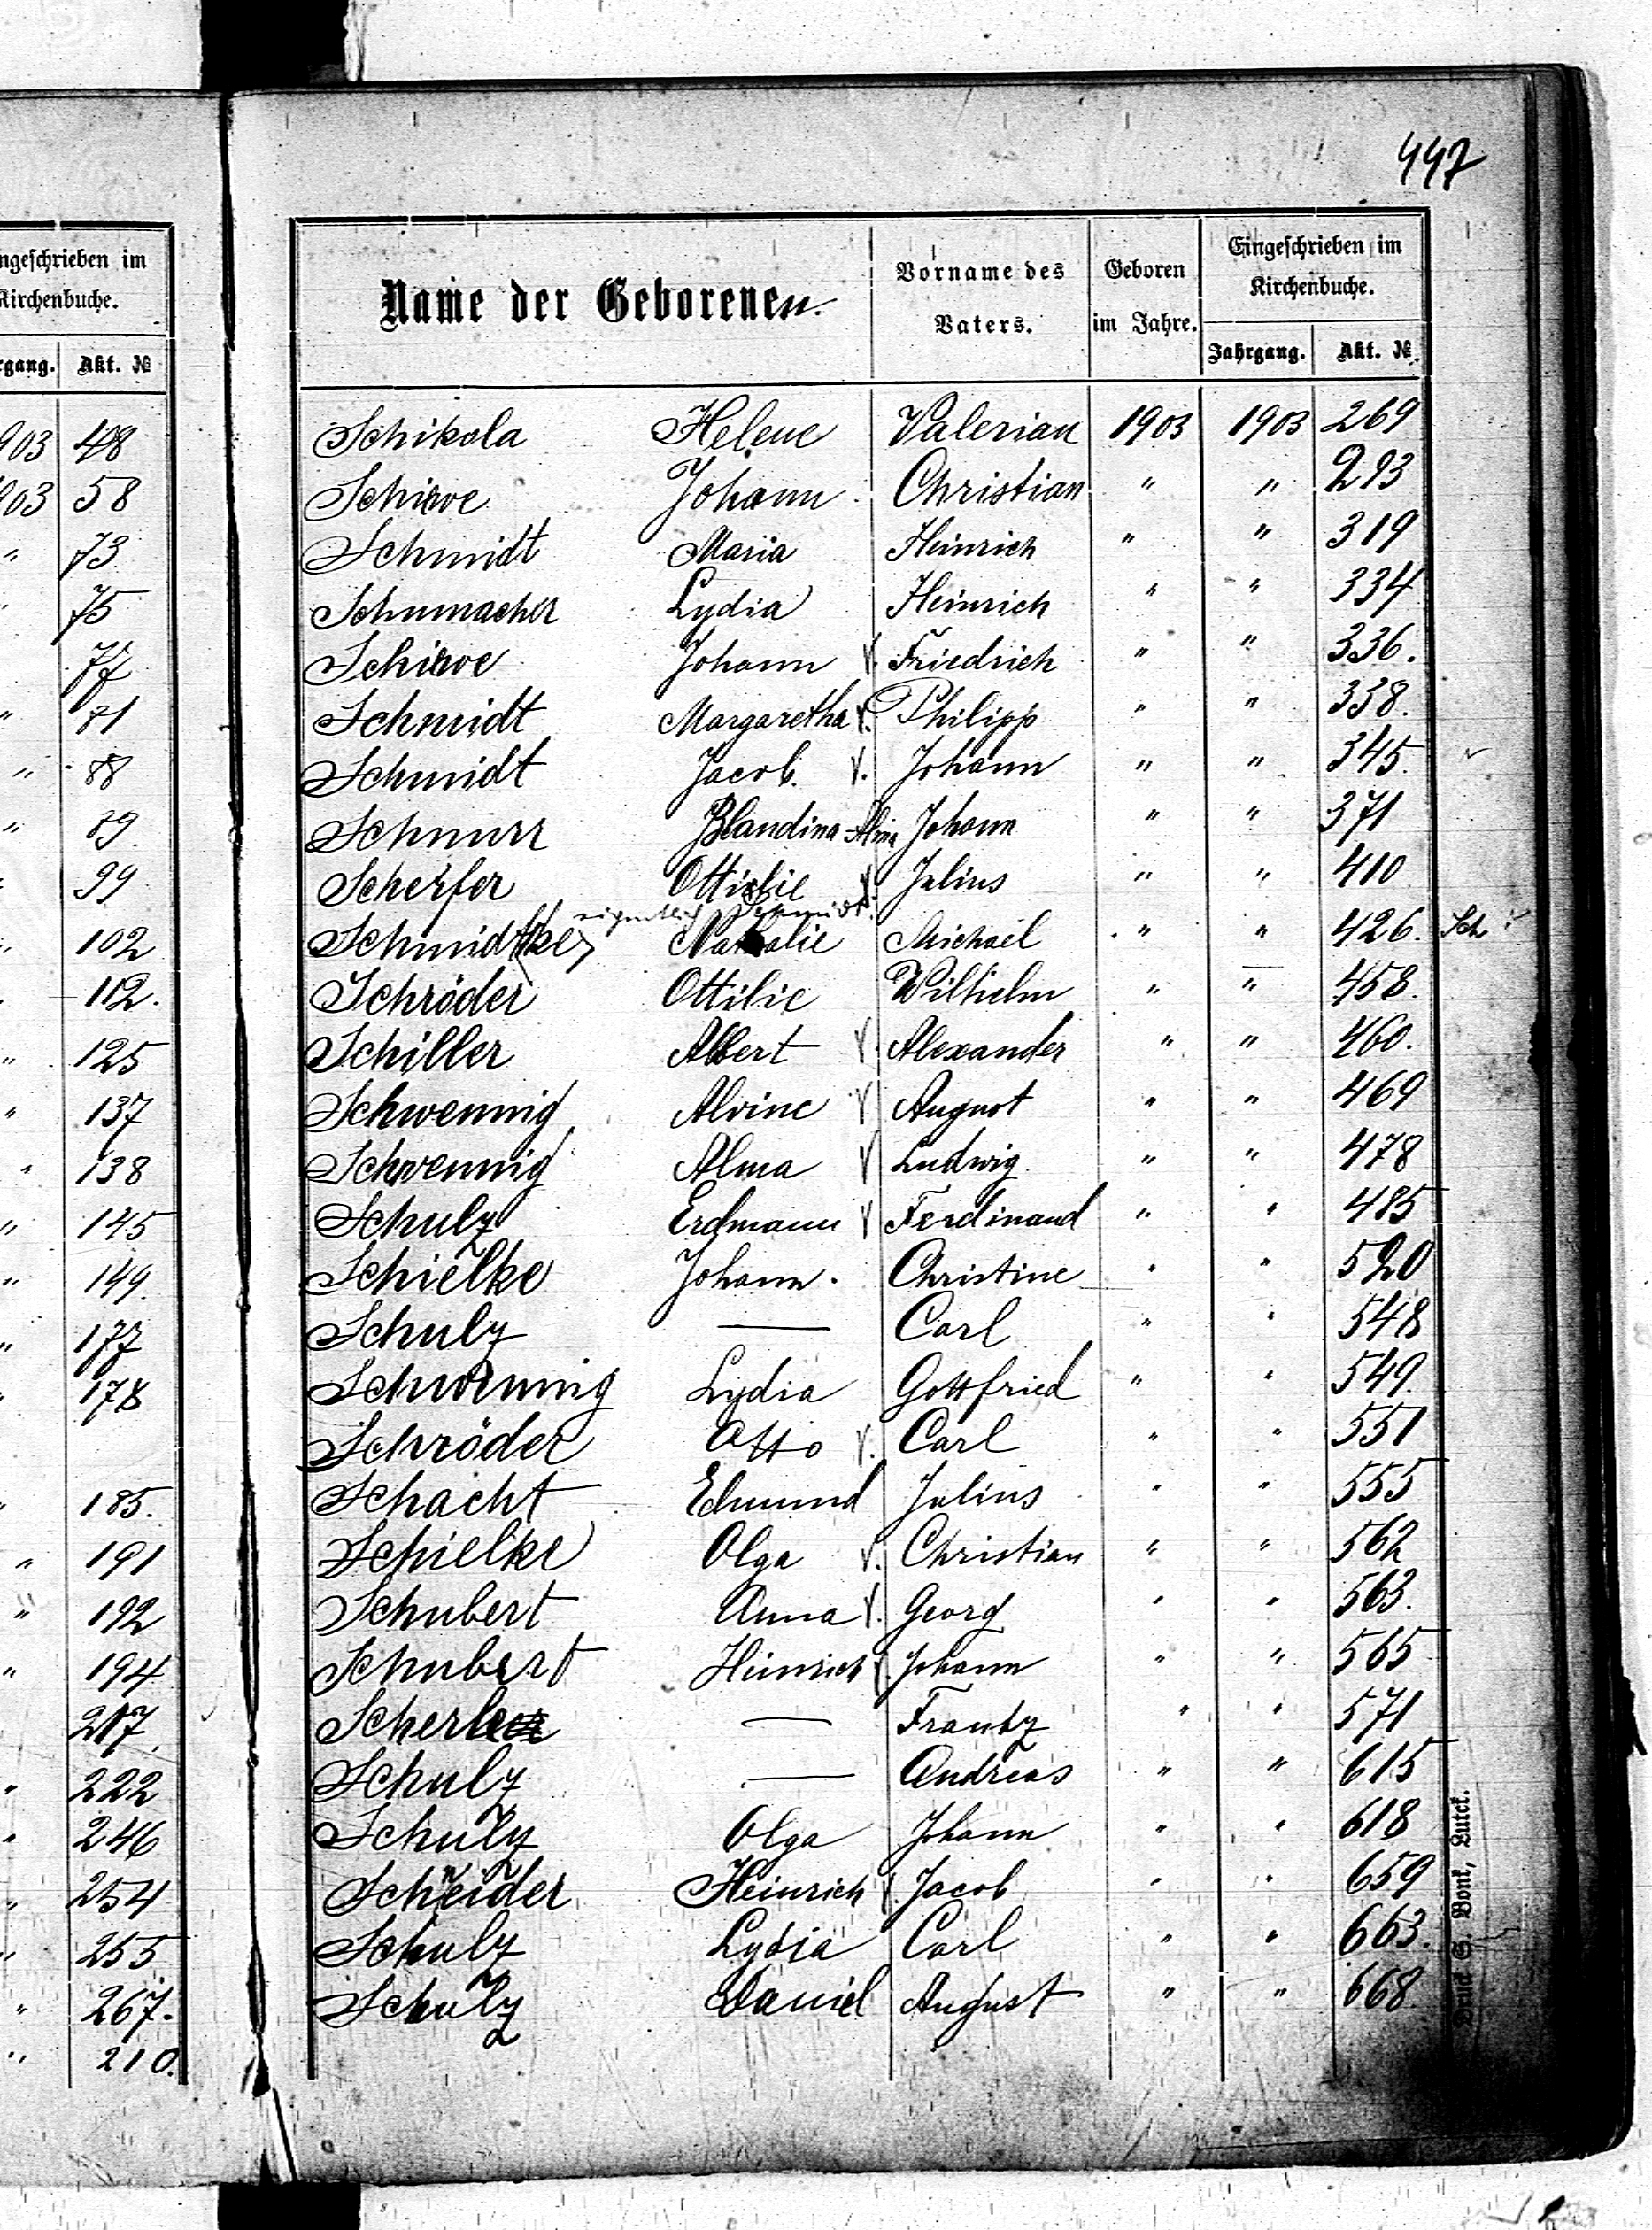 447
ngeschrieben im
Kirchenbuche.
rgang. Akt. №
903 48
903 58
" 73
" 75
77
" 81
" 88
" 89.
99
" 102
112.
" 125
" 137
" 138
" 145
" 149.
" 177
" 178
" 185.
" 191
" 192
" 194
217.
" 222
" 246
" 254
" 255
" 267.
" 210.
Name der Geborenen.
Vorname des Vaters.
Geboren im Jahre.
Eingeschrieben im Kirchenbuche.
Jahrgang. Akt. №
Schikola Helene Valerian 1903 1903 269
Schirve Johann Christian " " 293
Schmidt Maria Heinrich " " 319
Schumacher Lydia Heinrich " " 334
Schirve Johann V. Friedrich " " 336.
Schmidt Margaretha V. Philipp " " 338.
Schmidt Jacob V. Johann " " 345.
Schnurr Blandina Alma Johann " " 371
Scherfer Ottilie V Julius " " 410
eigentlich Schmidt
Schmidtke Nathalie Michael " " 426. Sch
Schröder Ottilie Wilhelm " " 458.
Schiller Albert V. Alexander " " 460.
Schwennig Alvine V August " " 469
Schwennig Alma V Ludwig " " 478
Schulz Erdmann V Ferdinand " " 485
Schielke Johann. Christine " " 520
Schulz — Carl " " 548
Schwennig Lydia Gottfried " " 549.
Schröder Otto V. Carl " " 551
Schacht Edmund Julius " " 555
Schielke Olga V. Christian " " 562
Schubert Anna V. Georg " " 563.
Schubert Heinrich V. Johann " " 565
Scherle — Frantz " " 571
Schulz — Andreas " " 615
Schulz Olga Johann " " 618
Schneider Heinrich V. Jacob " " 659
Schulz Lydia Carl " " 663.
Schulz Daniel August " " 668.
Druck S. Bonk, Lutck.